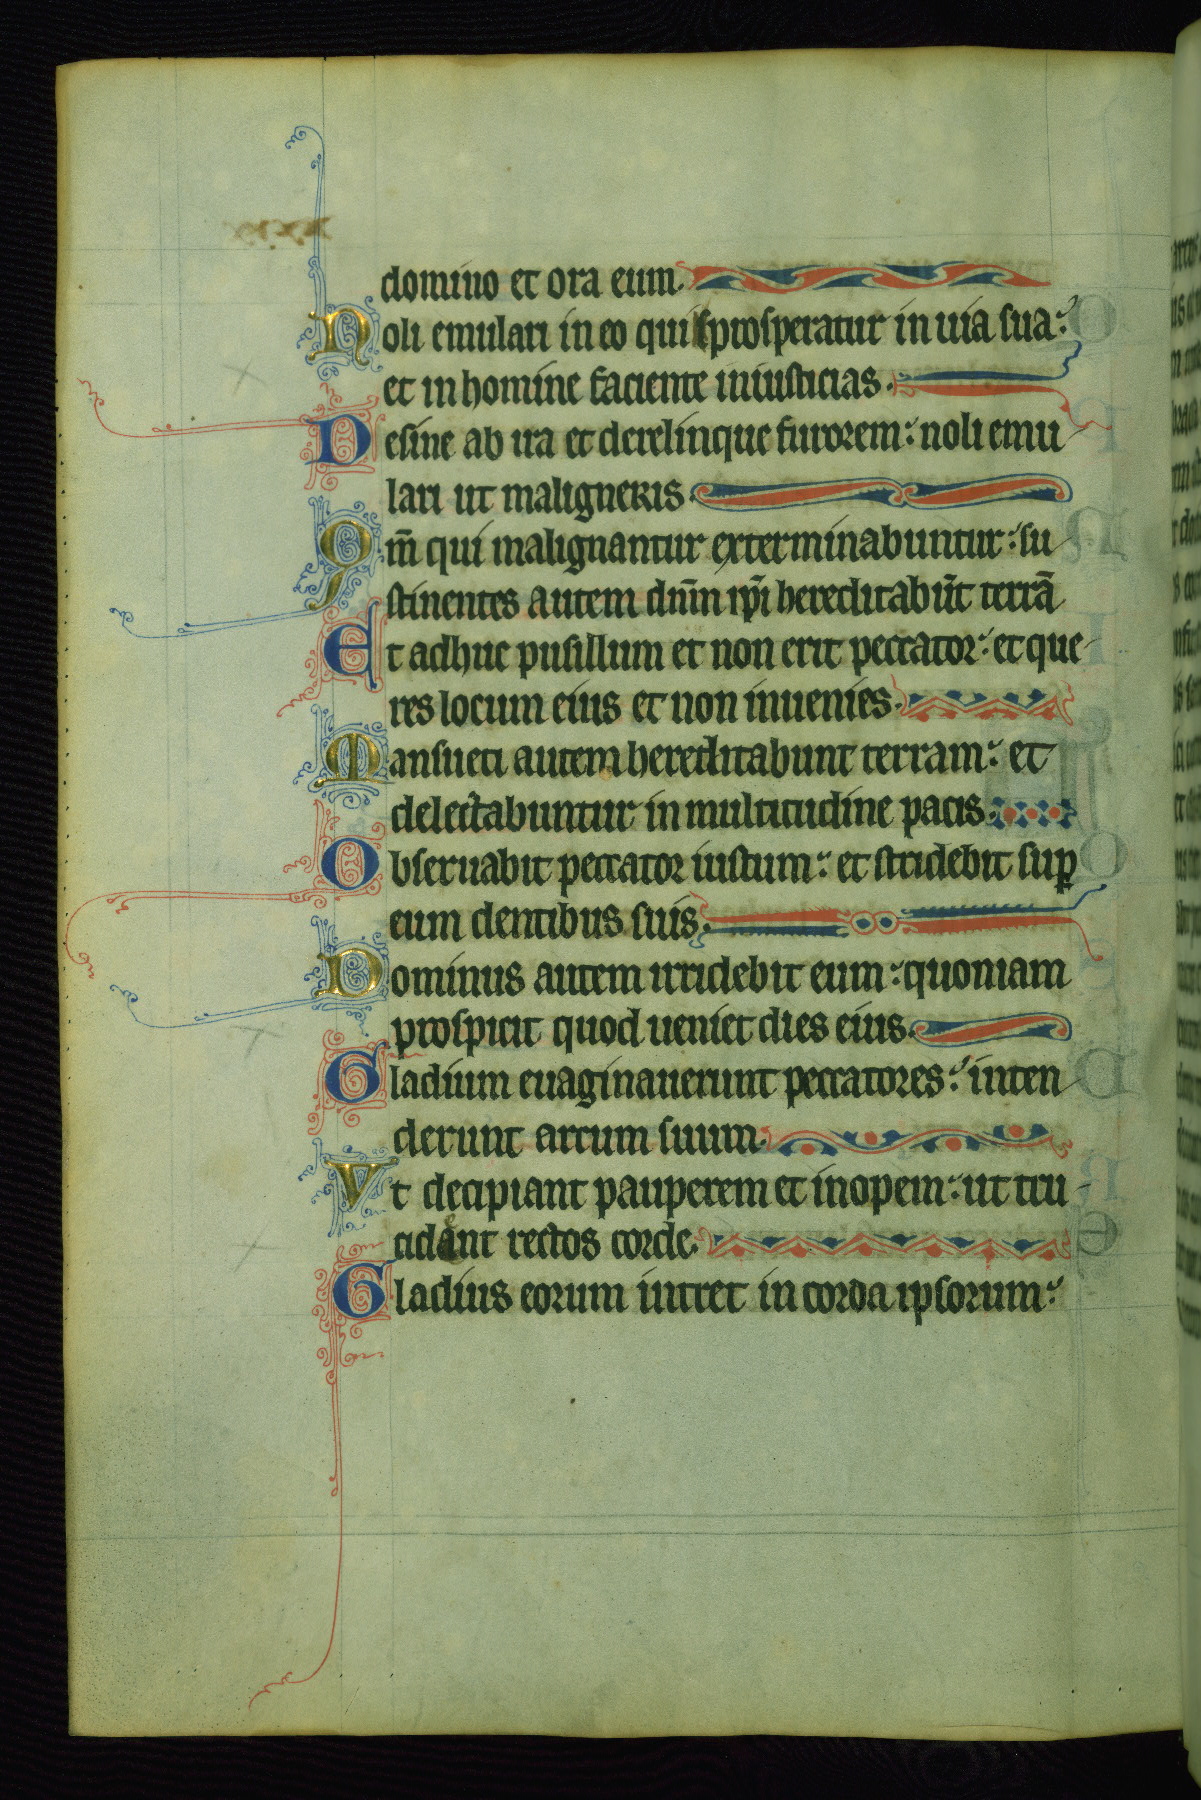 domino et ora eum.
Noli emulari in eo qui prosperatur in uia sua:
et in homine faciente iniusticias.
Desine ab ira et derelinque furorem: noli emu
lari ut maligneris.
Qm̄ qui malignantur exterminabuntur: su
stinentes autem dn̄m ip̄i hereditabūt terrā
Et adhuc pusillum et non erit peccator: et que
res locum eius et non inuenies.
Mansueti autem hereditabunt terram: et
delectabuntur in multitudine pacis.
Obseruabit peccator iustum: et stridebit suꝑ
eum dentibus suis.
Dominus autem irridebit eum: quoniam
prospicit quod ueniet dies eius.
Gladium euaginauerunt peccatores: inten
derunt arcum suum.
Vt decipiant pauperem et inopem: ut tru
cident rectos corde.
Gladius eorum intret in corda ipsorum: